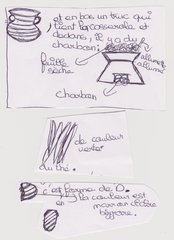 et en bas un truc qui
tient la casserole et
dedans, il y a du
charbon.
feuille
sèche
allumette
allumée
charbon
de couleur
verte
du thé.
c'est forme de D.
en la couleur est
marron clair